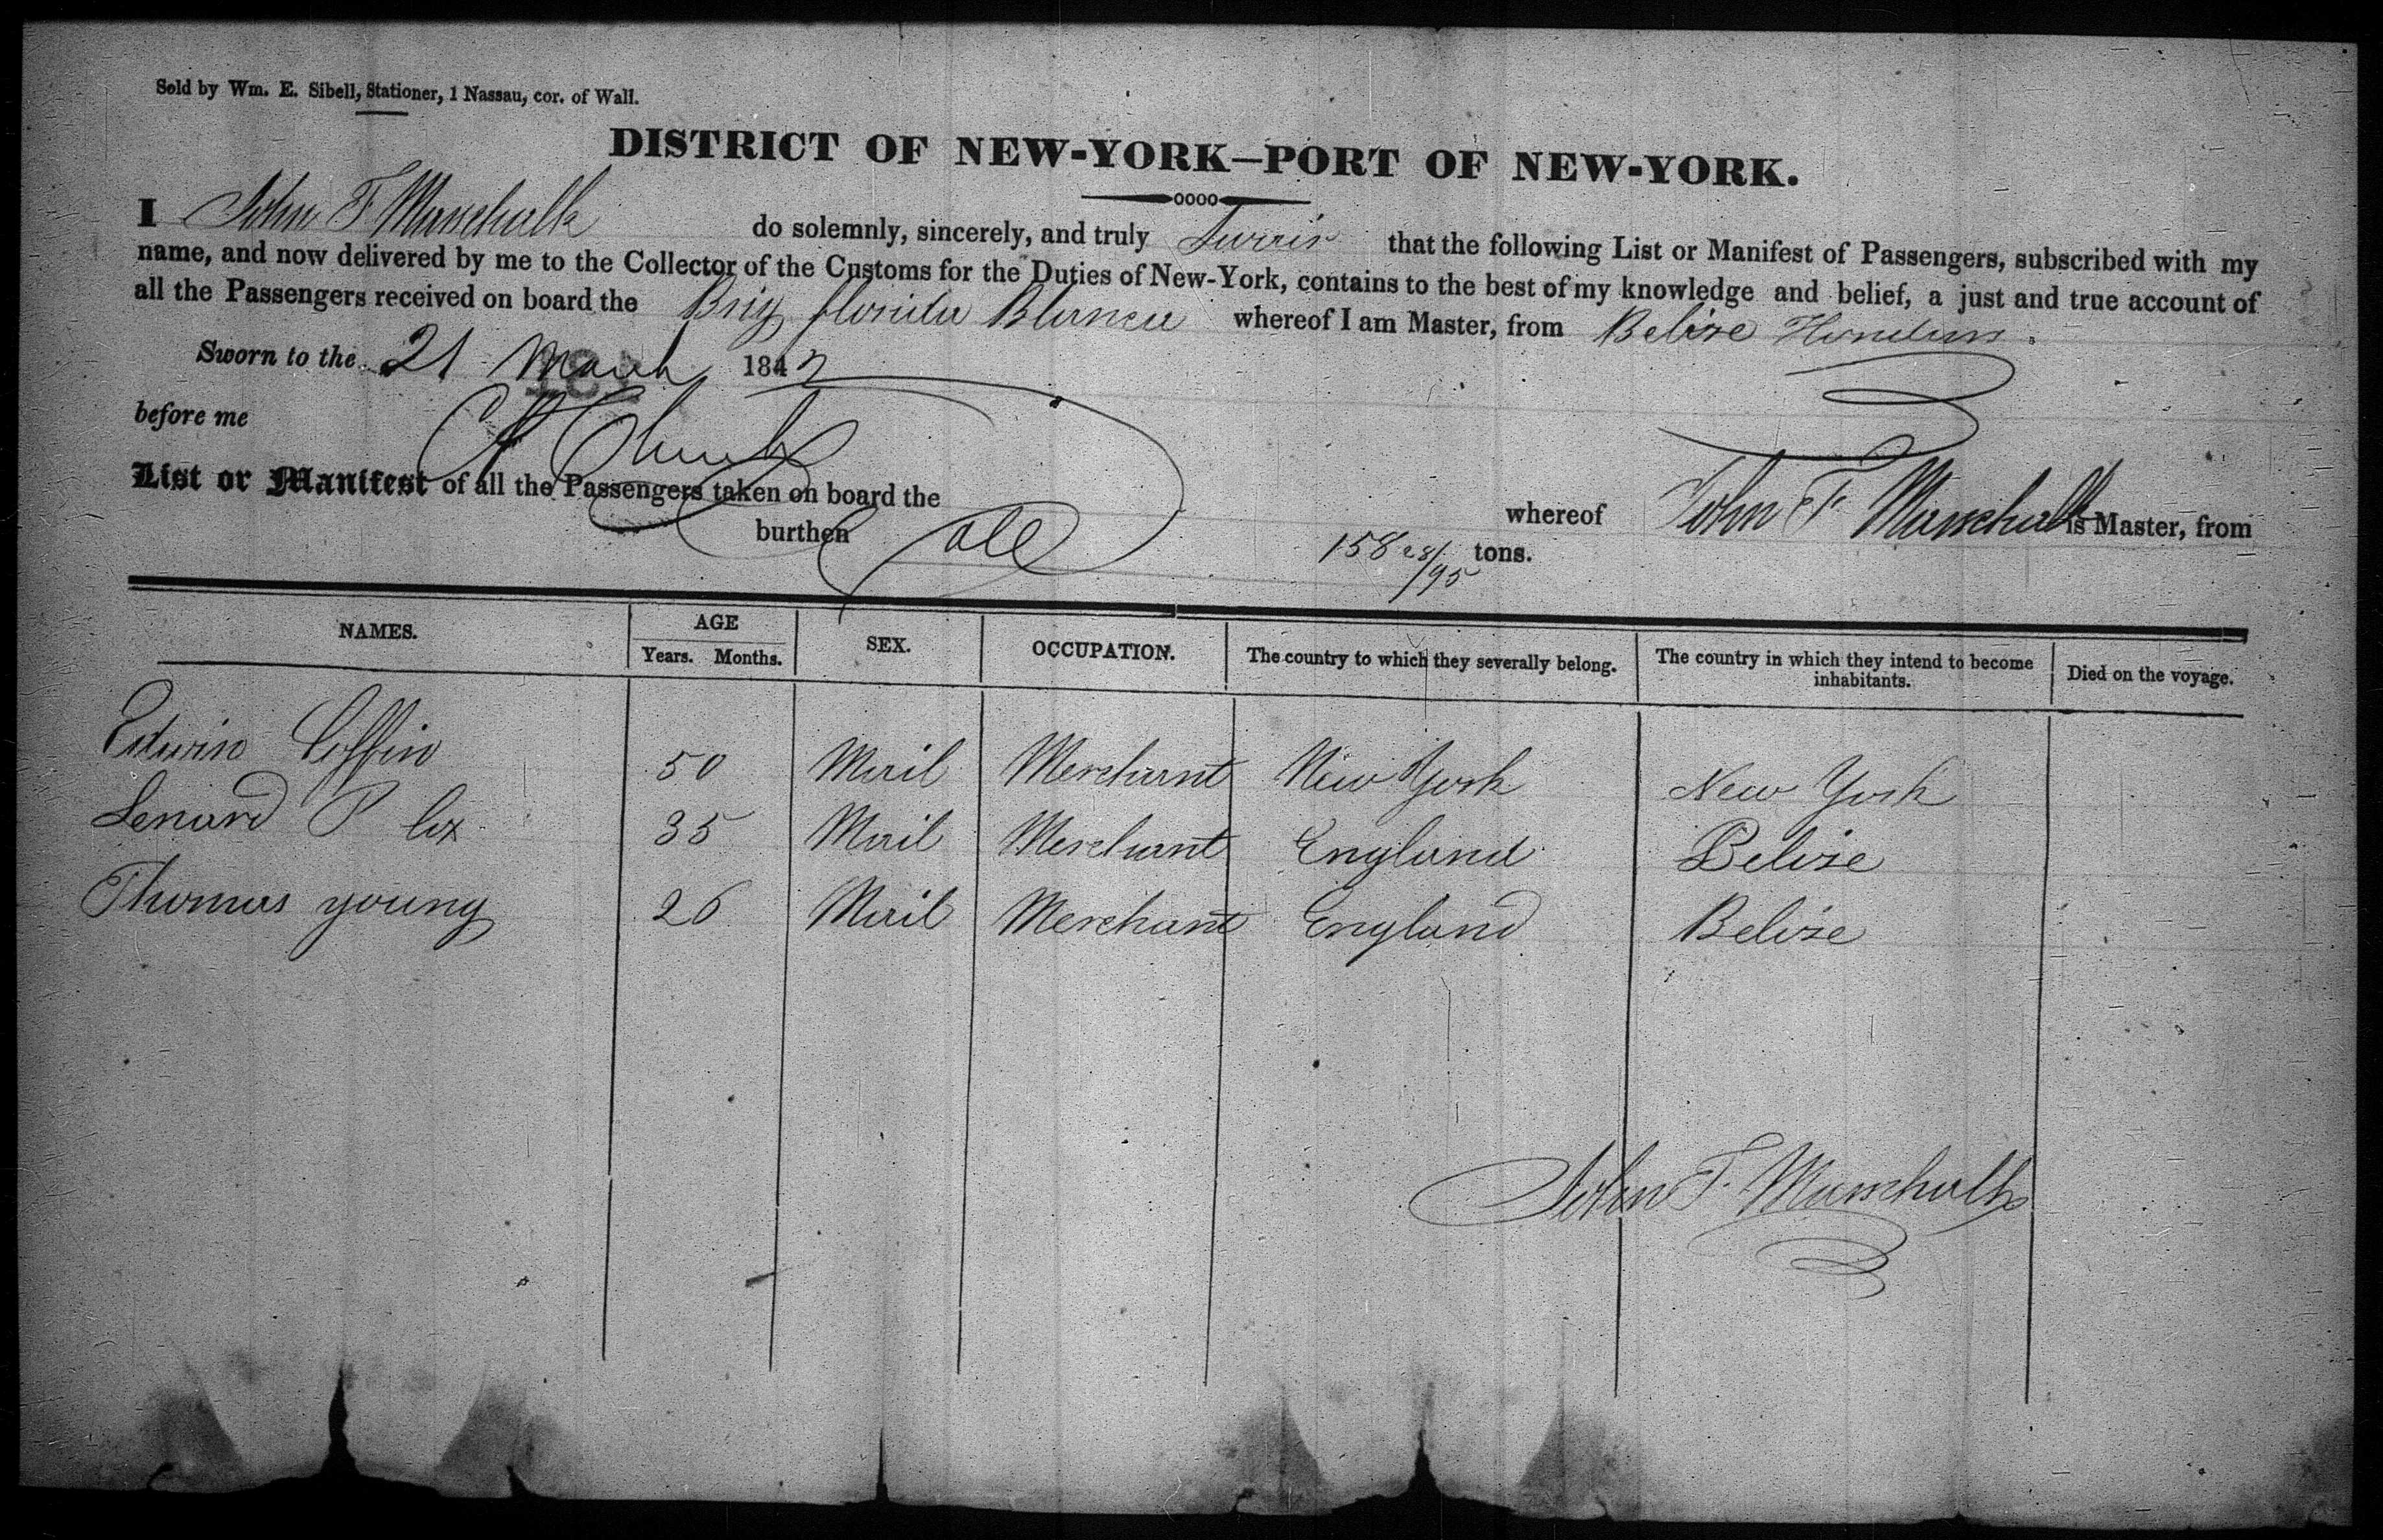 Sold by Wm. E. Sibell, Stationer, 1 Nassau, cor. of Wall.
DISTRICT OF NEW-YORK—PORT OF NEW-YORK.
I John F Marschalk do solemnly, sincerely, and truly that the following List or Manifest of Passengers, subscribed with my
name, and now delivered by me to the Collector of the Customs for the Duties of New-York, contains to the best of my knowledge and belief, a just and true account of
all the Passengers received on board the Brig florida Blanca whereof I am Master, from Belise Honduras.
Sworn to the 21 March 184
before me
List or Manifest of all the Passengers taken on board the whereof John F Marschalk is Master, from
burthen 158 28/95 tons.
NAMES. AGE Years. Months. SEX. OCCUPATION. The country to which they severally belong. The country in which they intend to become inhabitants. Died on the voyage.
Edwin Coffin 50 Mail Merchant New York New York
Lenard P Cox 35 Mail Merchant England Belise
Thomas young 26 Mail Merchant England Belise
John F. Marschalk